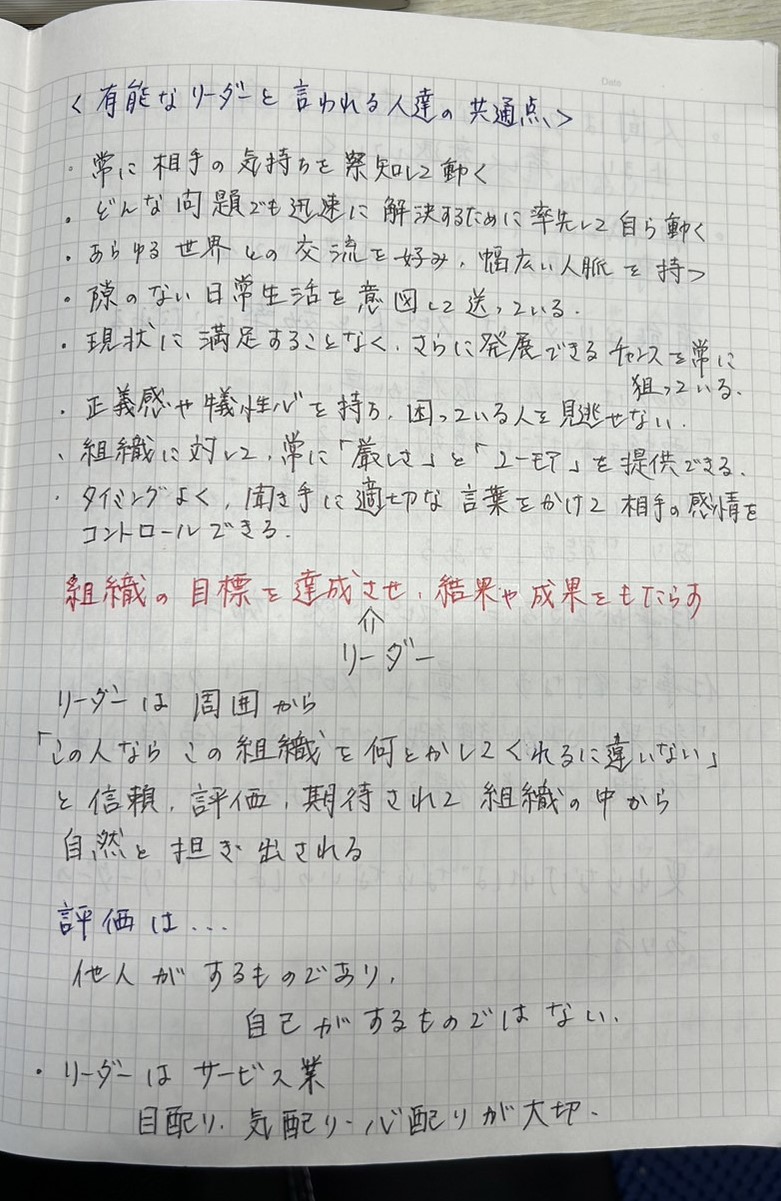 Date
＜有能なリーダーと言われる人達の共通点＞
・常に相手の気持ちを察知して動く
・どんな問題でも迅速に解決するために率先して自ら動く
・あらゆる世界との交流を好み、幅広い人脈を持つ
・隙のない日常生活を意図して送っている.
・現状に満足することなく、さらに発展できるチャンスを常に
狙っている.
・正義感や犠牲心を持ち、困っている人を見逃せない.
・組織に対して、常に「厳しさ」と「ユーモア」を提供できる.
・タイミングよく、聞き手に適切な言葉をかけて相手の感情を
コントロールできる.
組織の目標を達成させ、結果や成果をもたらす
⇑
リーダー
リーダーは周囲から
「この人ならこの組織を何とかしてくれるに違いない」
と信頼、評価、期待されて組織の中から
自然と担ぎ出される
評価は...
他人がするものであり、
自己がするものではない.
・リーダーはサービス業
目配り、気配り・心配りが大切.